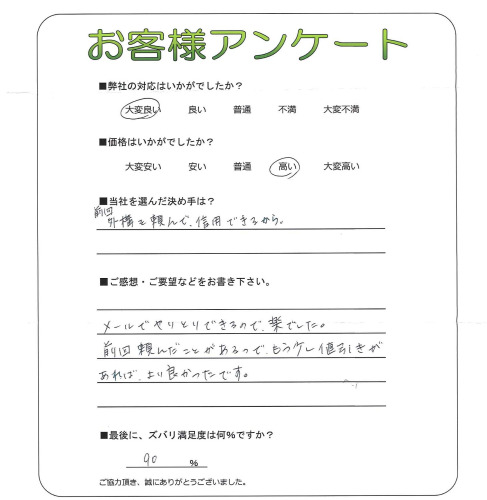 お客様アンケート
■弊社の対応はいかがでしたか？
大変良い 良い 普通 不満 大変不満
■価格はいかがでしたか？
大変安い 安い 普通 高い 大変高い
■当社を選んだ決め手は？
前回
外構を頼んで、信用できるから。
■ご感想・ご要望などをお書き下さい。
メールでやりとりできるので、楽でした。
前回頼んだことがあるので、もう少し値引きが
あれば、より良かったです。
■最後に、ズバリ満足度は何％ですか？
90 ％
ご協力頂き、誠にありがとうございました。